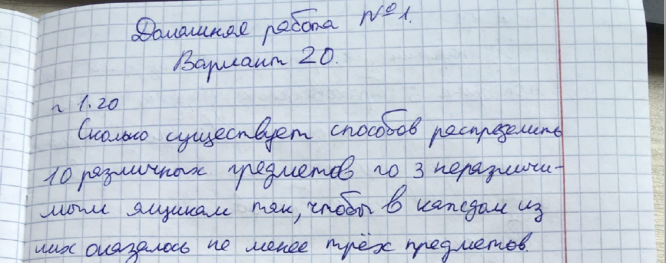 Домашняя работа №1.
Вариант 20.
n 1.20
Сколько существует способов распределить
10 различных предметов по 3 неразличи-
мым ящикам так, чтобы в каждом из
них оказалось не менее трёх предметов.